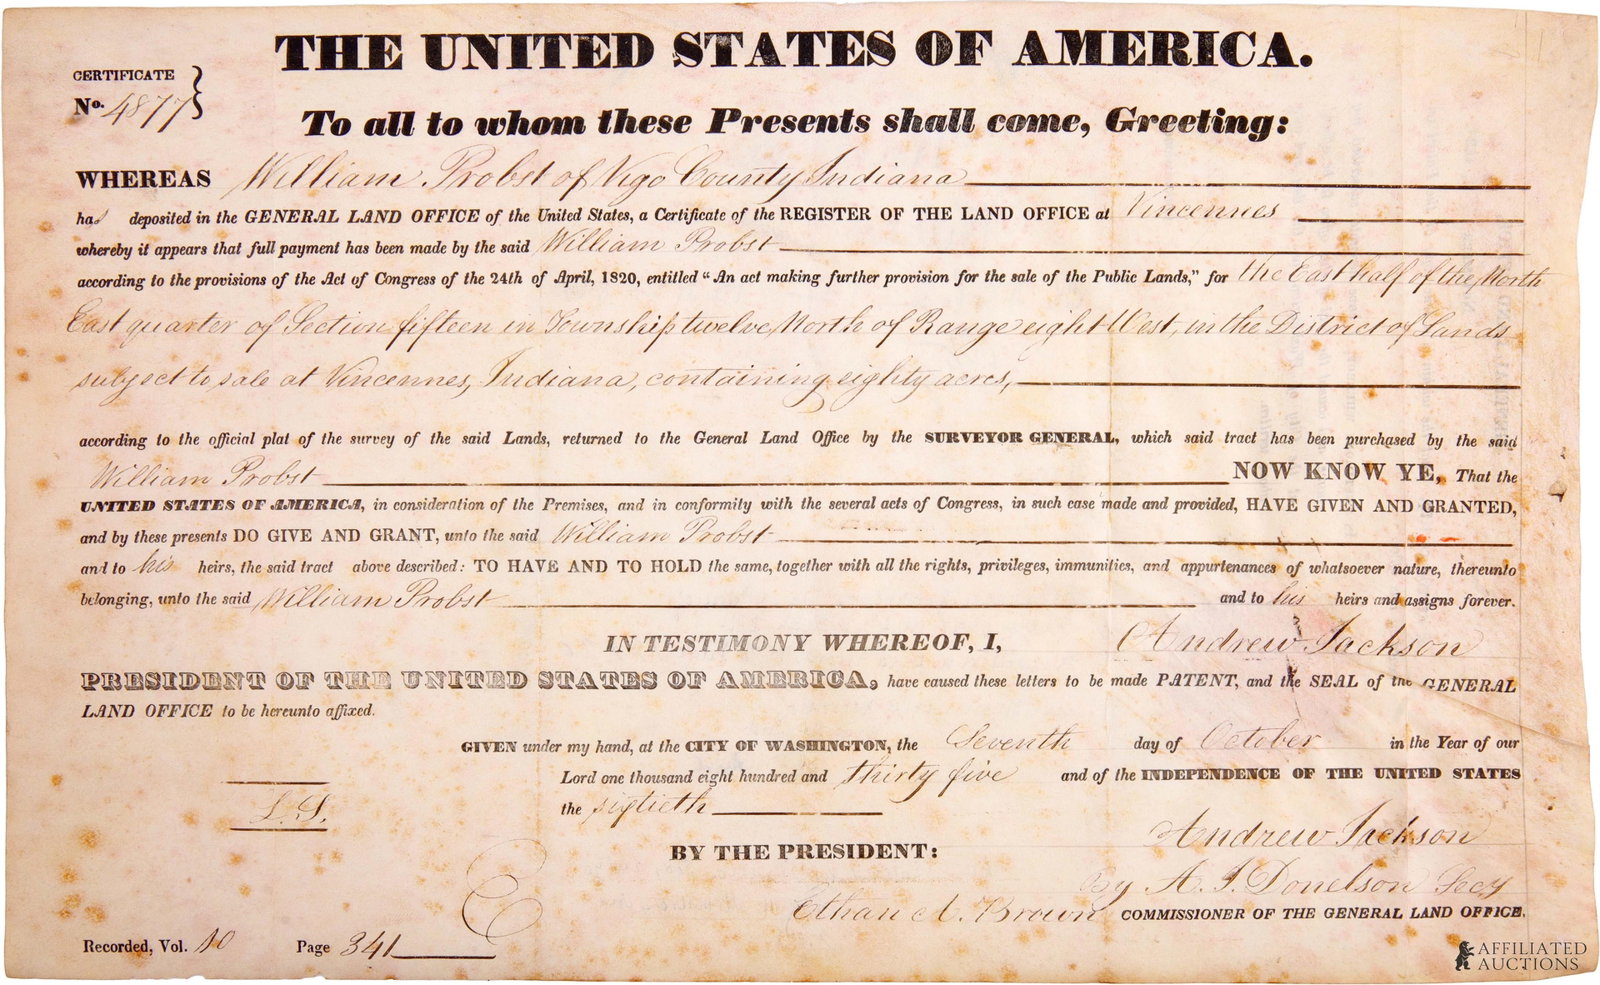 THE UNITED STATES OF AMERICA.
CERTIFICATE
No. 4877
To all to whom these Presents shall come, Greeting:
WHEREAS William Probst of Vigo County Indiana
has deposited in the GENERAL LAND OFFICE of the United States, a Certificate of the REGISTER OF THE LAND OFFICE at Vincennes
whereby it appears that full payment has been made by the said William Probst
according to the provisions of the Act of Congress of the 24th of April, 1820, entitled "An act making further provision for the sale of the Public Lands," for the East half of the North
East quarter of Section fifteen in Township twelve North of Range eight West, in the District of Lands
subject to sale at Vincennes, Indiana, containing eighty acres,
according to the official plat of the survey of the said Lands, returned to the General Land Office by the SURVEYOR GENERAL, which said tract has been purchased by the said
William Probst NOW KNOW YE, That the
UNITED STATES OF AMERICA, in consideration of the Premises, and in conformity with the several acts of Congress, in such case made and provided, HAVE GIVEN AND GRANTED,
and by these presents DO GIVE AND GRANT, unto the said William Probst
and to his heirs, the said tract above described: TO HAVE AND TO HOLD the same, together with all the rights, privileges, immunities, and appurtenances of whatsoever nature, thereunto
belonging, unto the said William Probst and to his heirs and assigns forever.
IN TESTIMONY WHEREOF, I, Andrew Jackson
PRESIDENT OF THE UNITED STATES OF AMERICA, have caused these letters to be made PATENT, and the SEAL of the GENERAL
LAND OFFICE to be hereunto affixed.
GIVEN under my hand, at the CITY OF WASHINGTON, the Seventh day of October in the Year of our
Lord one thousand eight hundred and thirty five and of the INDEPENDENCE OF THE UNITED STATES
the sixtieth
L.S.
BY THE PRESIDENT: Andrew Jackson
By A. J. Donelson Secy
Ethan A. Brown COMMISSIONER OF THE GENERAL LAND OFFICE.
Recorded, Vol. 10 Page 341
AFFILIATED
AUCTIONS